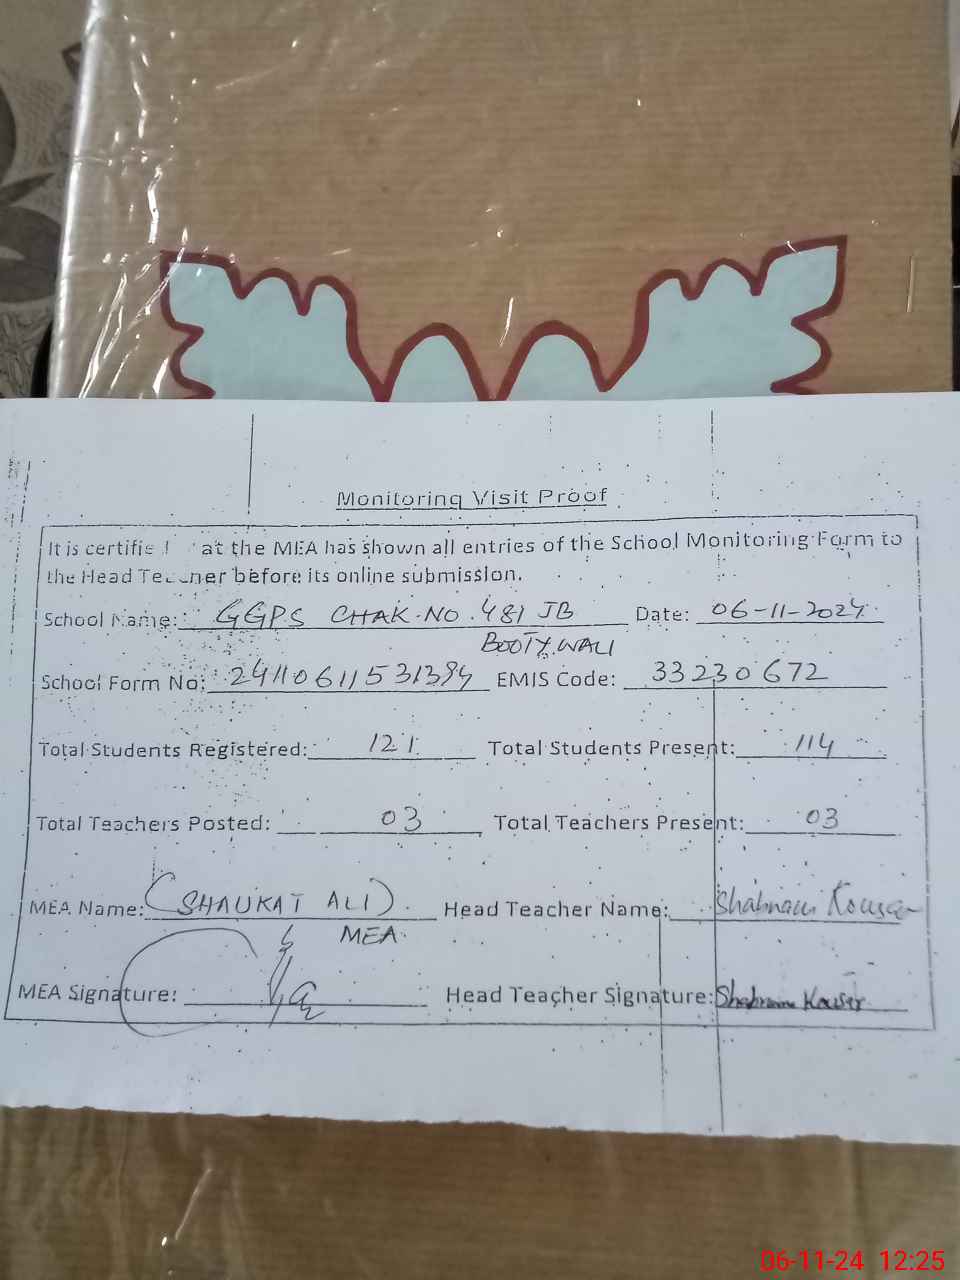 Monitoring Visit Proof
It is certifie at the MEA has shown all entries of the School Monitoring Form to
the Head Teacher before its online submission.
School Name: GGPS CHAK NO. 481 JB Date: 06-11-2024
BOOTY WALI
School Form No: 2411061153 1394 EMIS Code: 33230672
Total Students Registered: 121 Total Students Present: 114
Total Teachers Posted: 03 Total Teachers Present: 03
MEA Name: (SHAUKAT ALI). Head Teacher Name: Shabnam Kousar
MEA
MEA Signature: Head Teacher Signature: Shabnam Kouser
06-11-24 12:25